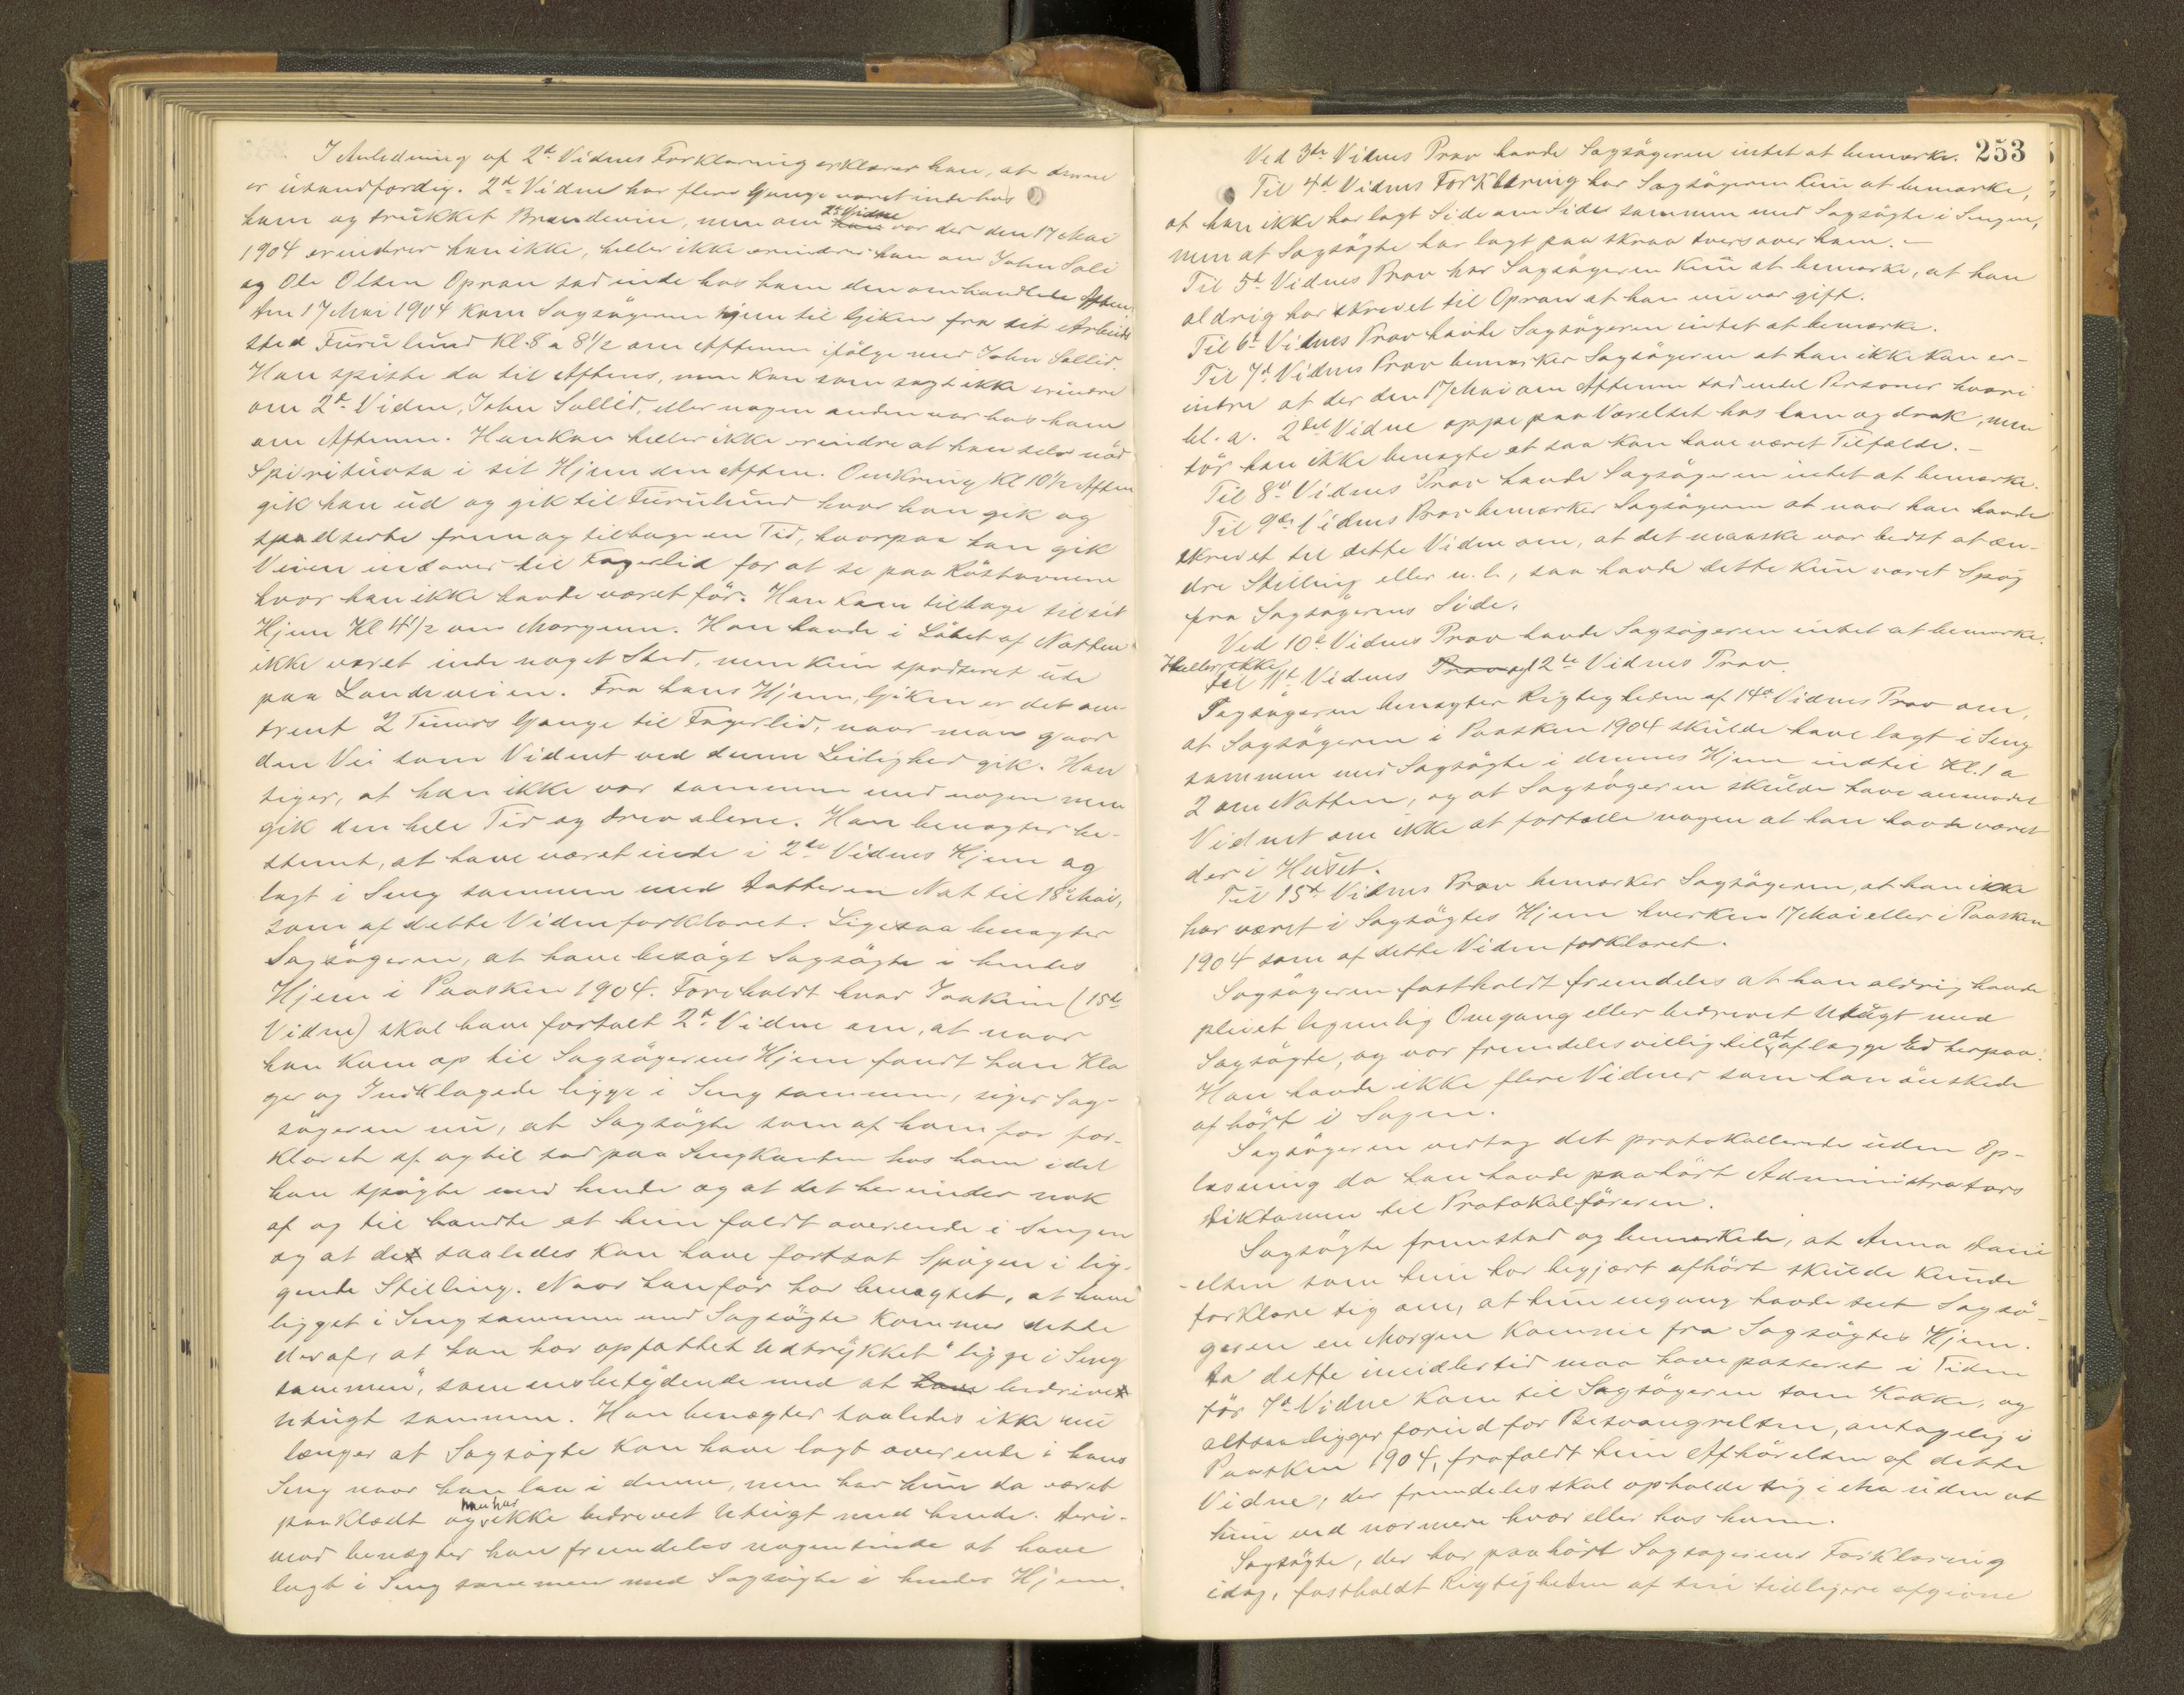 I Anledning af 2det Vidnes Forklaring erklærer han, at denne
er usandfærdig. 2det Vidne har flere Gange været inde hos
ham og drukket Brændevin, men om han 2det Vidne var der den 17 Mai
1904 erindrer han ikke, heller ikke erindrer han om John Soli
og Ole Olsen Opran sad inde hos ham den omhandlede Aften.
Den 17 Mai 1904 kom Sagsøgeren hjem til Giken fra sit Arbeids
sted Furulund Kl. 8 a 8 1/2 om Aftenen ifølge med John Sollid.
Han spiste da til Aftens, men kan som sagt ikke erindre
om 2det Vidne, John Sollid, eller nogen anden var hos ham
om Aftenen. Han kan heller ikke erindre at han selv nød
Spirituosa i sit Hjem den Aften. Omkring Kl 10 1/2 Aften
gik han ud og gik til Furulund hvor han gik og
spadserte frem og tilbage en Tid, hvorpaa han gik
Veien indover til Fagerlid for at se paa Røstovnene
hvor han ikke havde været før. Han kom tilbage til sit
Hjem Kl 4 1/2 om Morgenen. Han havde i Løbet af Natten
ikke været inde noget Sted, men kun spadseret ude
paa Landeveien. Fra hans Hjem, Giken er det om-
trent 2 Timers Gange til Fagerlid, naar man gaar
den Vei som Vidnet ved denne Leilighed gik. Han
siger, at han ikke var sammen med nogen men
gik den hele Tid og drev alene. Han benægter be-
stemt, at have været inde i 2det Vidnes Hjem og
lagt i Seng sammen med Datteren Nat til 18de Mai,
som af dette Vidne forklaret. Ligesaa benægter
Sagsøgeren, at have besøgt Sagsøgte i hendes
Hjem i Paasken 1904. Foreholdt hvad Joakim (15de
Vidne) skal have fortalt 2det Vidne om, at naar
han kom op til Sagsøgerens Hjem fandt han Kla
ger og Indklagede ligge i Seng sammen, siger Sag-
søgeren nu, at Sagsøgte som af ham før for-
klaret af og til sad paa Sengkanten hos ham idet
han spøgte med hende og at det herunder nok
af og til hændte at hun faldt overende i Sengen
og at de saaledes kan have fortsat Spøgen i lig-
gende Stilling. Naar han før har benægtet, at have
ligget i Seng sammen med Sagsøgte kommer dette
deraf, at han har opfattet Udtrykket "ligge i Seng
sammen", som ensbetydende med at have bedrive
Utugt sammen. Han benægter saaledes ikke nu
længer at Sagsøgte kan have lagt overende i hans
Seng naar han laa i denne, men har hun da været
paaklædt og han har ikke bedrevet Utugt med hende. Deri-
mod benægter han fremdeles nogensinde at have
lagt i Seng sammen med Sagsøgte i hendes Hjem.
253
Ved 3die Vidnes Prov havde Sagsøgeren intet at bemærke.
Til 4de Vidnes Forklaring har Sagsøgeren kun at bemærke,
at han ikke har lagt Side om Side sammen med Sagsøgte i Sengen,
men at Sagsøgte har lagt paa skraa tvers over ham. –
Til 5te Vidnes Prov har Sagsøgeren kun at bemærke, at han
aldrig har skrevet til Opran at han nu var gift.
Til 6te Vidnes Prov havde Sagsøgeren intet at bemærke.
Til 7de Vidnes Prov bemærker Sagsøgeren at han ikke kan er-
indre at der den 17 Mai om Aftenen sad endel Personer hvori
bl. a. 2det Vidne oppe paa Værelset hos ham og drak, men
tør han ikke benægte at saa kan have været Tilfælde. –
Til 8de Vidnes Prov havde Sagsøgeren intet at bemærke.
Til 9de Vidnes Prov bemærker Sagsøgeren at naar han havde
skrevet til dette Vidne om, at det maaske var bedst at æn-
dre Stilling eller n. l., saa havde dette kun været Spøg
fra Sagsøgerens Side.
Ved 10de Vidnes Prov havde Sagsøgeren intet at bemærke.
Heller ikke
til 11te Vidnes Prov og 12te Vidnes Prov.
Sagsøgeren benægter Rigtigheden af 14de Vidnes Prov om,
at Sagsøgeren i Paasken 1904 skulde have lagt i Seng
sammen med Sagsøgte i dennes Hjem indtil Kl. 1 a
2 om Natten, og at Sagsøgeren skulde have anmodet
Vidnet om ikke at fortælle nogen at han havde været
der i Huset.
Til 15de Vidnes Prov bemærker Sagsøgeren, at han ikke
har været i Sagsøgtes Hjem hverken 17 Mai eller i Paasken
1904 som af dette Vidne forklaret.
Sagsøgeren fastholdt fremdeles at han aldrig havde
pleiet legemlig Omgang eller bedrevet Utugt med
Sagsøgte, og var fremdeles villig til at aflægge Ed herpaa.
Han havde ikke flere Vidner som han ønskede
afhørt i Sagen.
Sagsøgeren vedtog det protokollerede uden Op-
læsning da han havde paahørt Administrators
Diktamen til Protokolføreren.
Sagsøgte fremstod og bemærkede, at Anna Dani
-elsen som hun har begjært afhørt skulde kunde
forklare sig om, at hun engang havde seet Sagsø-
geren en Morgen komme fra Sagsøgtes Hjem.
Da dette imidlertid maa have passeret i Tiden
før 7de Vidne kom til Sagsøgeren som Kokke, og
altsaa ligger forud for Besvangrelsen, antagelig i
Paasken 1904, frafaldt hun Afhørelsen af dette
Vidne, der fremdeles skal opholde sig i Mo uden at
hun ved nærmere hvor eller hos hvem.
Sagsøgte, der har paahørt Sagsøgerens Forklaring
idag, fastholdt Rigtigheden af sin tidligere afgivne